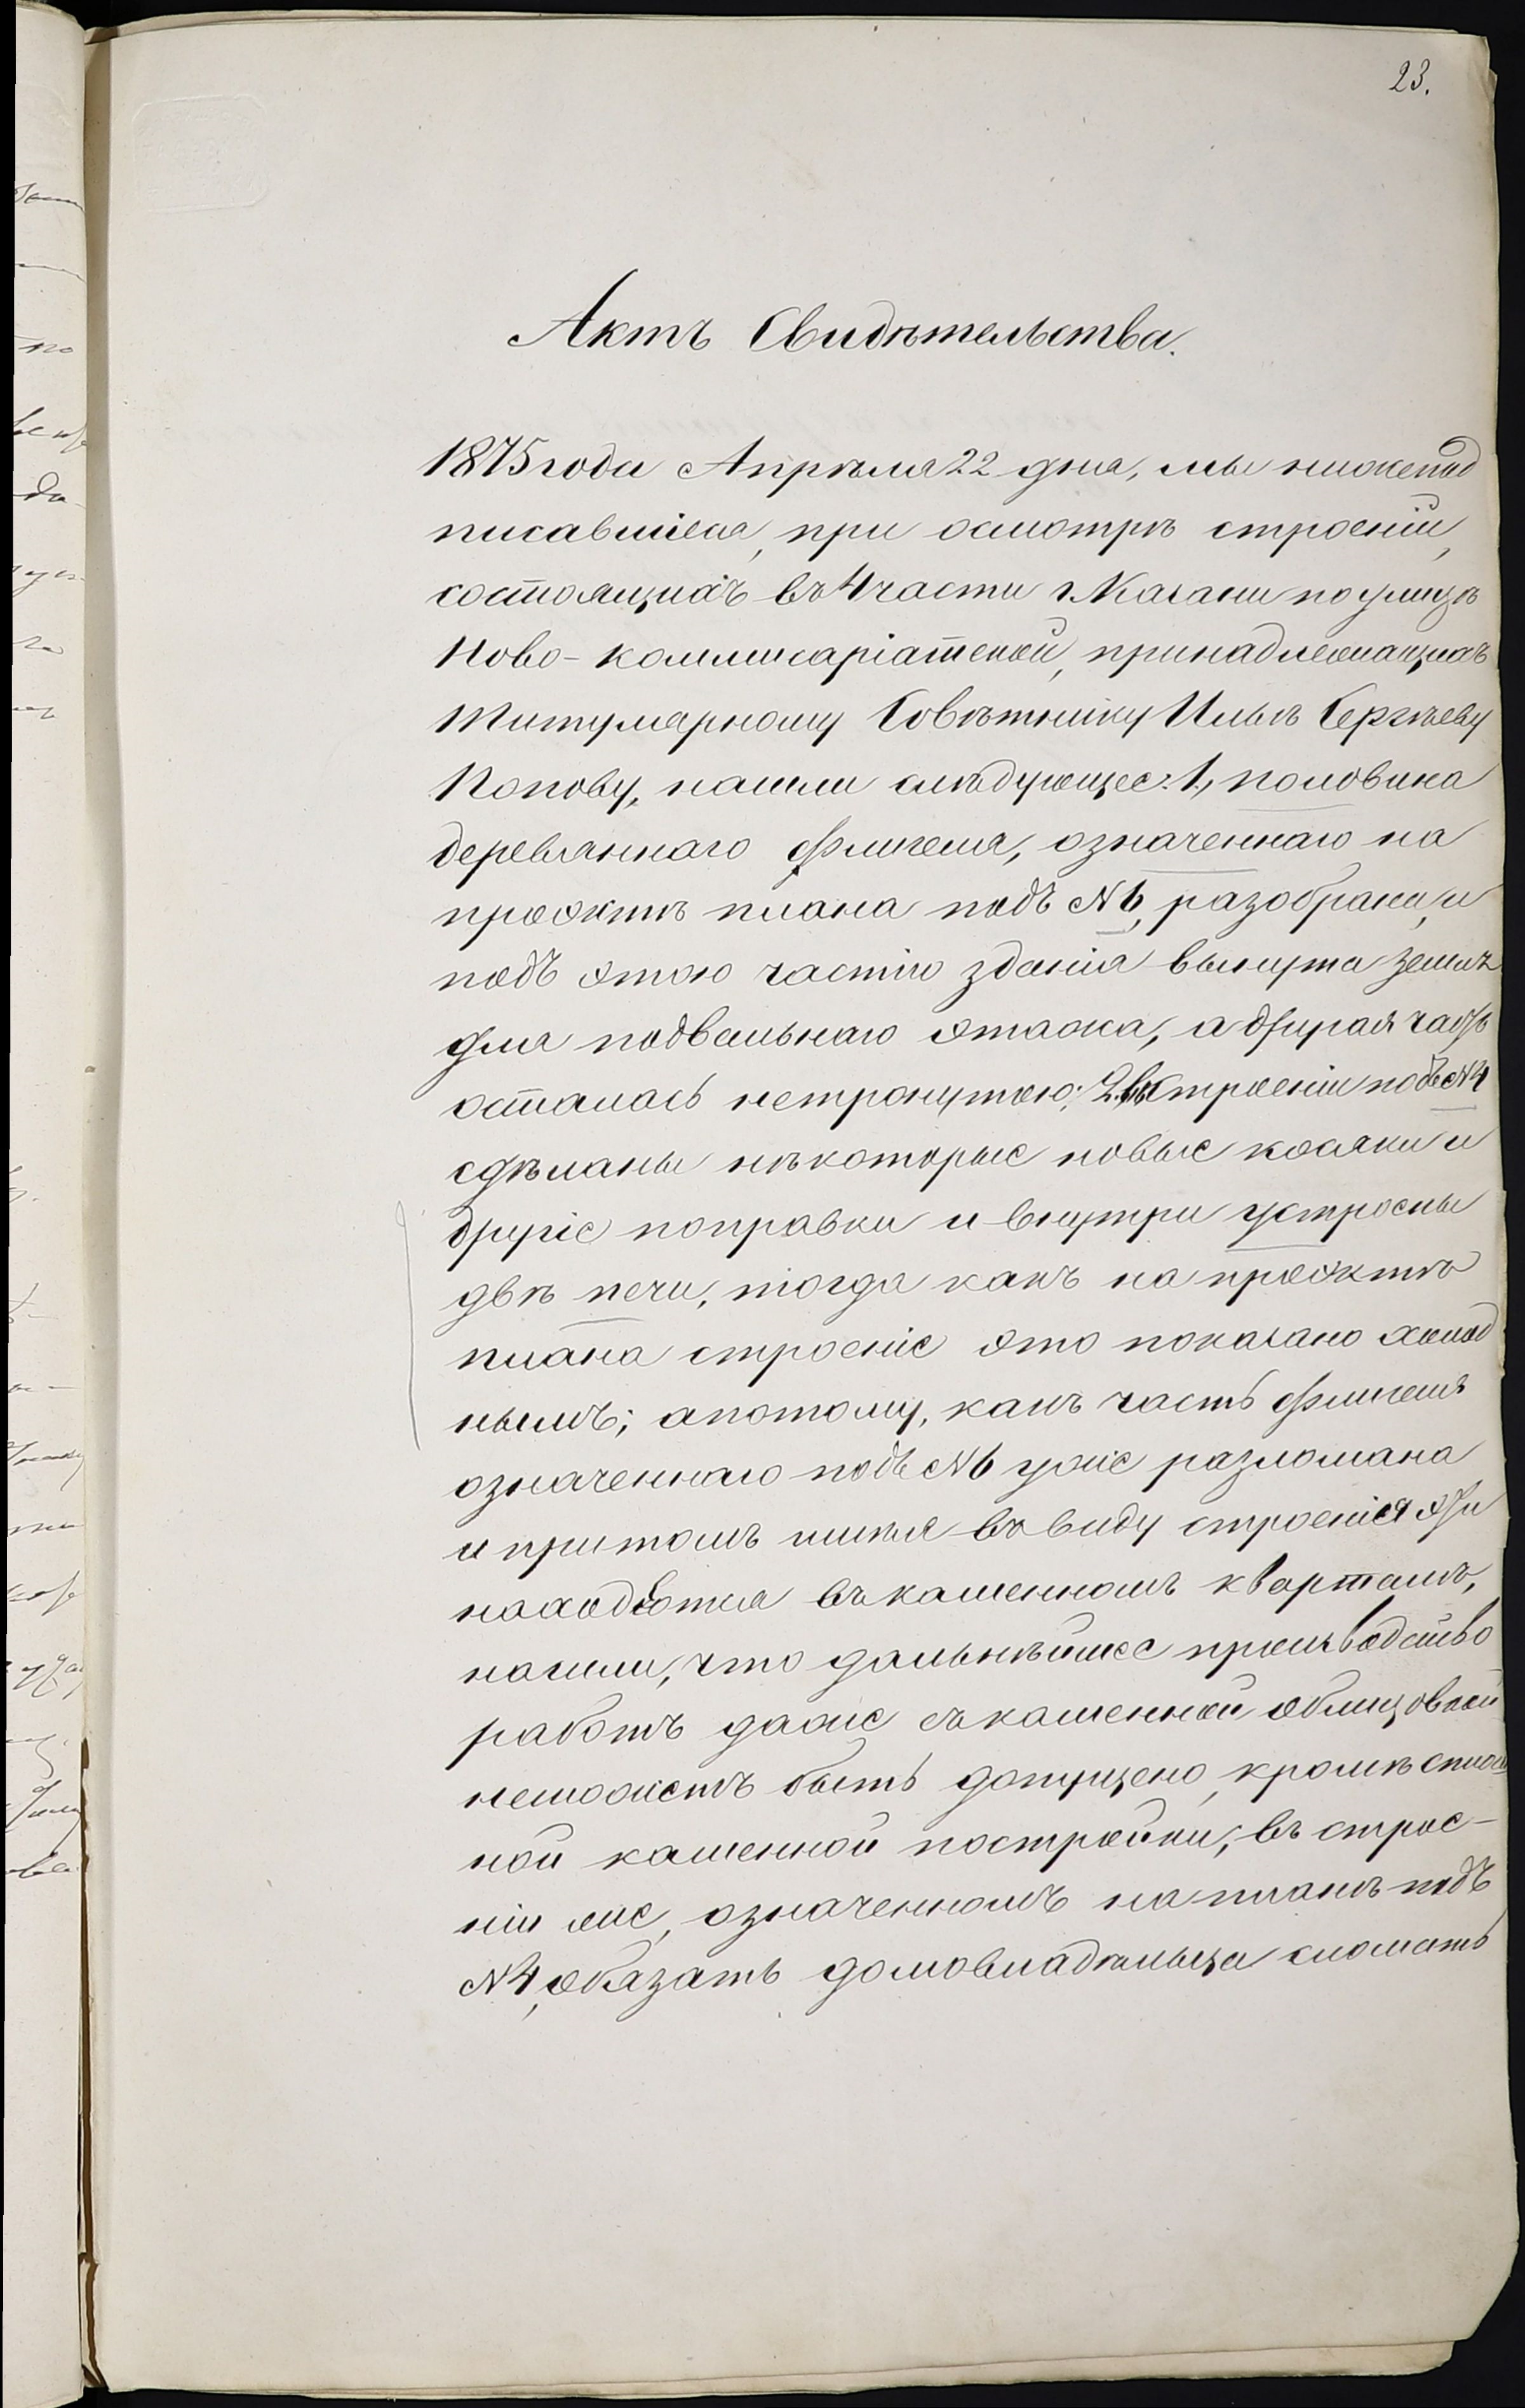 23.
Актъ Свидѣтельства.
1875 года Апрѣля 22 дня, мы нижепод
писавшіеся, при осмотрѣ строеній,
состоящихъ въ 4 части г. Казани по улицѣ
Ново-коммисаріатской, принадлежащихъ
Титулярному Совѣтнику Ильѣ Сергѣеву
Попову, нашли слѣдующее: 1, половина
деревяннаго флигеля, означеннаго на
проэктѣ плана подъ № 6, разобрана, и
подъ этою частію зданія вынута земля
для подвальнаго этажа, а другая часть
осталась нетронутою; 2, въ строеніи подъ № 4
сдѣланы нѣкоторые новые косяки и
другіе поправки и внутри устроены
двѣ печи, тогда какъ на проэктѣ
плана строеніе это показано холод
нымъ; а потому, какъ часть флигеля
означеннаго подъ № 6 уже разломана
и притомъ имѣя въ виду строенія эти
находятся въ каменномъ кварталѣ,
нашли, что дальнѣйшее производство
работъ даже съ каменной облицовкой
неможетъ быть допущено, кромѣ сплош
ной каменной постройки; въ строе-
ніи же, означенномъ на планѣ подъ
№ 4, обязать домовладѣльца сломать